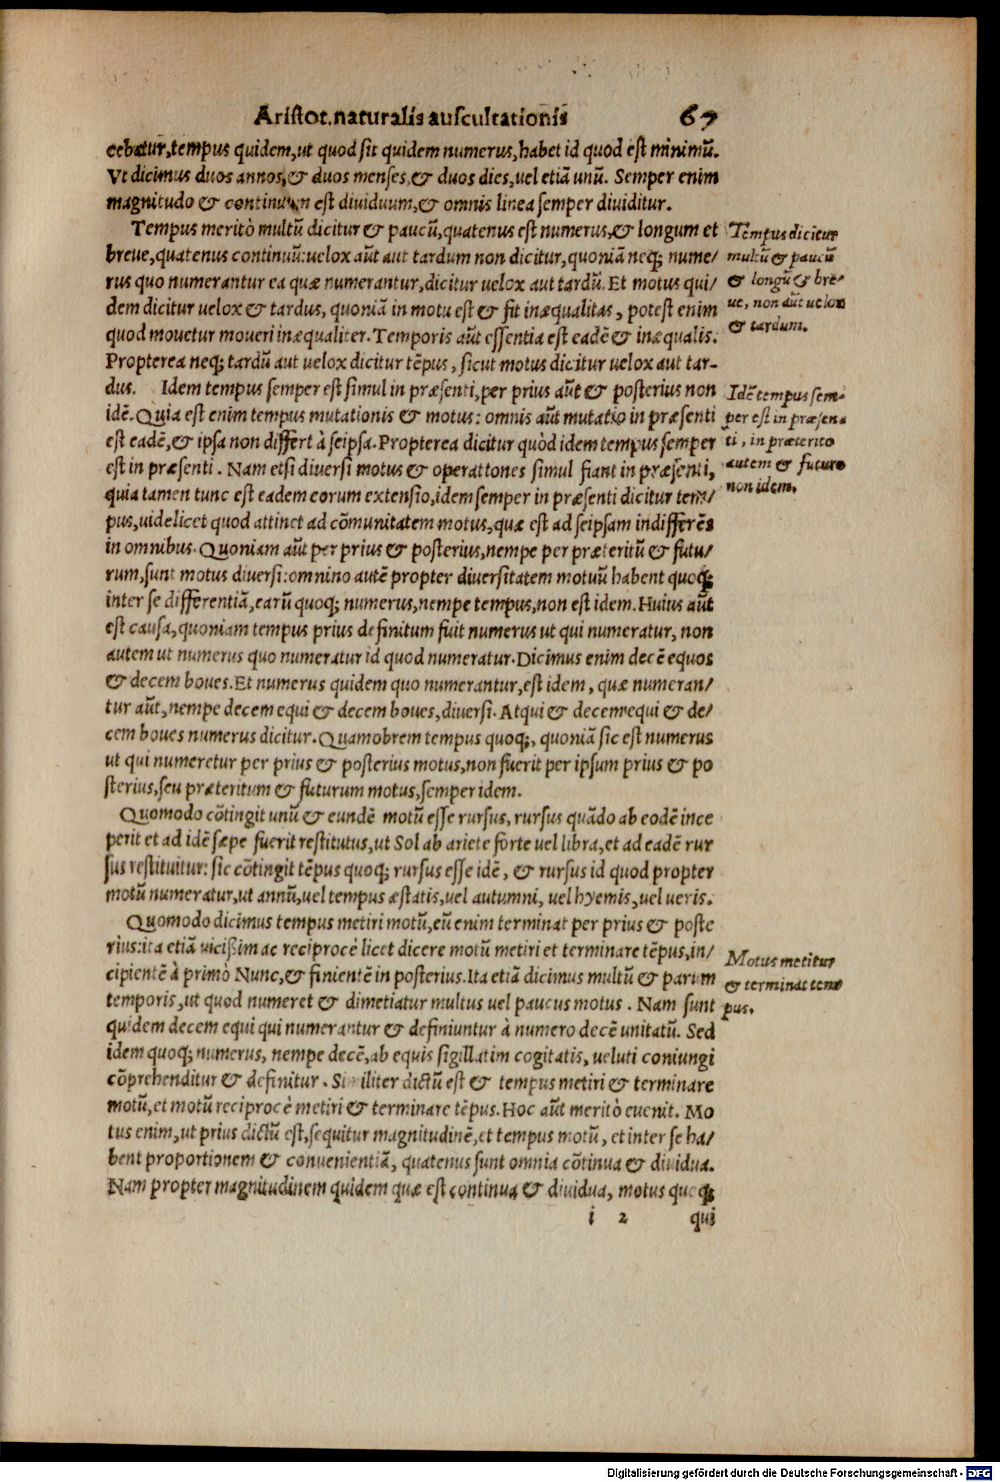 Aristot. naturalis auscultationis 67
cebatur, tempus quidem, ut quod sit quidem numerus, habet id quod est minimũ.
Vt dicimus duos annos, & duos menses, & duos dies, uel etiã unũ. Semper enim
magnitudo & continuum est diuiduum, & omnis linea semper diuiditur.
Tempus meritò multũ dicitur & paucũ, quatenus est numerus, & longum et
breue, quatenus continuũ: uelox aũt aut tardum non dicitur, quoniã neq; nume/
rus quo numerantur ea quæ numerantur, dicitur uelox aut tardũ. Et motus qui/
dem dicitur uelox & tardus, quoniã in motu est & fit inæqualitas, potest enim
quod mouetur moueri inæqualiter. Temporis aũt essentia est eadẽ & inæqualis.
Propterea neq; tardũ aut uelox dicitur tẽpus, sicut motus dicitur uelox aut tar-
dus. Idem tempus semper est simul in præsenti, per prius aũt & posterius non
idẽ. Quia est enim tempus mutationis & motus: omnis aũt mutatio in præsenti
est eadẽ, & ipsa non differt à seipsa. Propterea dicitur quòd idem tempus semper
est in præsenti. Nam etsi diuersi motus & operattones simul fiant in præsenti,
quia tamen tunc est eadem eorum extensio, idem semper in præsenti dicitur tem/
pus, uidelicet quod attinet ad cõmunitatem motus, quæ est ad seipsam indifferẽs
in omnibus. Quoniam aũt per prius & posterius, nempe per præteritũ & futu/
rum, sunt motus diuersi: omnino autẽ propter diuersitatem motuũ habent quoq;
inter se differentiã, earũ quoq; numerus, nempe tempus, non est idem. Huius aũt
est causa, quoniam tempus prius definitum fuit numerus ut qui numeratur, non
autem ut numerus quo numeratur id quod numeratur. Dicimus enim decẽ equos
& decem boues. Et numerus quidem quo numerantur, est idem, quæ numeran/
tur aũt, nempe decem equi & decem boues, diuersi. Atqui & decem equi & de/
cem boues numerus dicitur. Quamobrem tempus quoq;, quoniã sic est numerus
ut qui numeretur per prius & posterius motus, non fuerit per ipsum prius & po
sterius, seu præteritum & futurum motus, semper idem.
Quomodo cõtingit unũ & eundẽ motũ esse rursus, rursus quãdo ab eodẽ ince
perit et ad idẽ sæpe fuerit restitutus, ut Sol ab ariete forte uel libra, et ad eadẽ rur
sus restituitur: sic cõtingit tẽpus quoq; rursus esse idẽ, & rursus id quod propter
motũ numeratur, ut annũ, uel tempus æstatis, uel autumni, uel hyemis, uel ueris.
Quomodo dicimus tempus metiri motũ, eũ enim terminat per prius & poste
rius: ita etiã uicißim ac reciprocè licet dicere motũ metiri et terminare tẽpus, in/
cipientẽ à primò Nunc, & finientẽ in posterius. Ita etiã dicimus multũ & parum
temporis, ut quod numeret & dimetiatur multus uel paucus motus. Nam sunt
quidem decem equi qui numerantur & definiuntur à numero decẽ unitatũ. Sed
idem quoq; numerus, nempe decẽ, ab equis sigillatim cogitatis, ueluti coniungi
cõprehenditur & definitur. Similiter dictũ est & tempus metiri & terminare
motũ, et motũ reciprocè metiri & terminare tẽpus. Hoc aũt meritò euenit. Mo
tus enim, ut prius dictũ est, sequitur magnitudinẽ, et tempus motũ, et inter se ha/
bent proportionem & conuenientiã, quatenus sunt omnia cõtinua & diuidua.
Nam propter magnitudinem quidem quæ est continua & diuidua, motus quoq;
i 2 qui
Tempus dicitur
multũ & paucũ
& longũ & bre-
ue, non aũt uelox
& tardum.
Idẽ tempus sem-
per est in præsen-
ti, in præterito
autem & futuro
non idem.
Motus metitur
& terminat tem
pus.
Digitalisierung gefördert durch die Deutsche Forschungsgemeinschaft - DFG